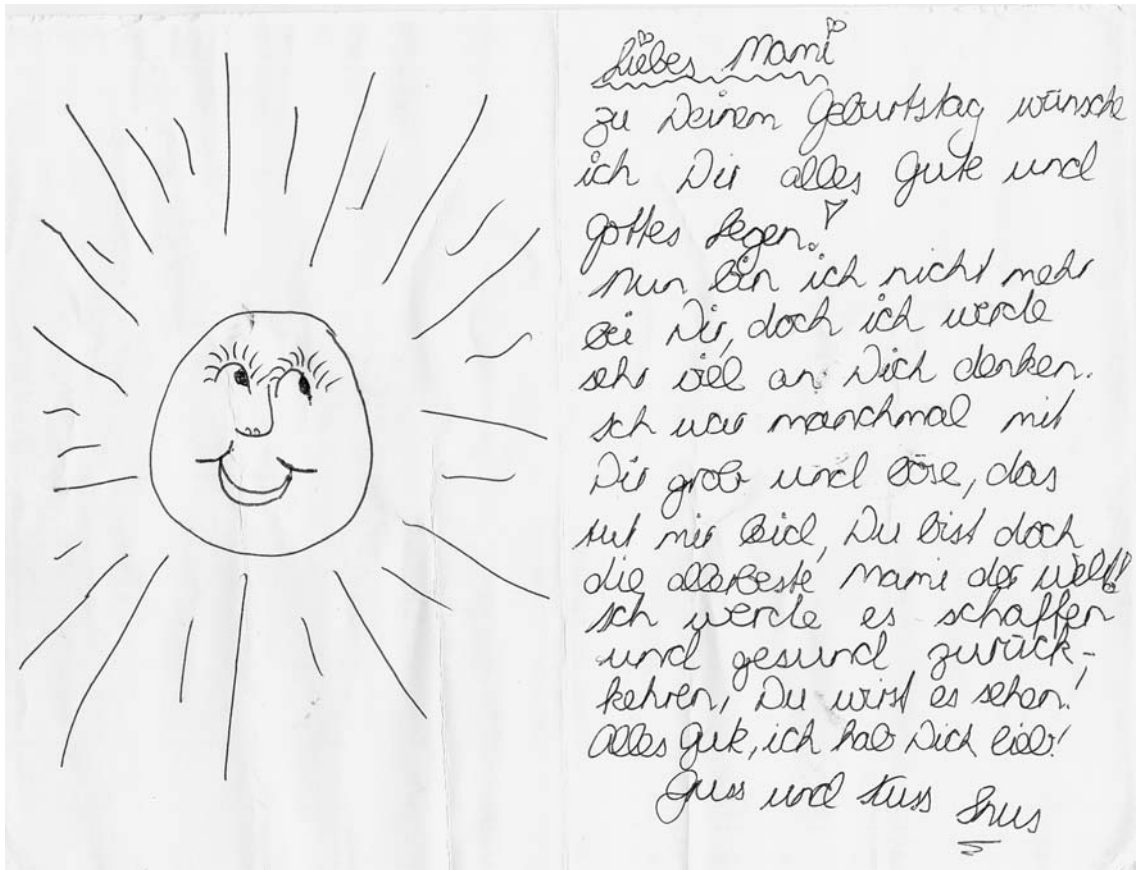 Liebes Mami
zu Deinem Geburtstag wünsche
ich Dir alles Gute und
Gottes Segen!
Nun bin ich nicht mehr
bei Dir, doch ich werde
sehr viel an Dich denken.
Ich war manchmal mit
Dir grob und böse, das
tut mir leid, Du bist doch
die allerbeste Mami der Welt!
Ich werde es schaffen
und gesund zurück-
kehren, Du wirst es sehen!
Alles Gute, ich hab Dich lieb!
Gruss und Kuss